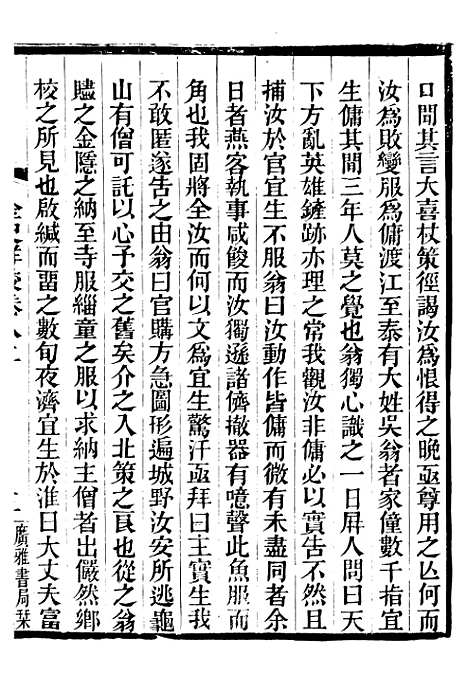 口聞其言大喜杖策徑謁汝爲恨得之晚亟尊用之亾何而
汝爲敗變服爲傭渡江至泰有大姓吳翁者家僮數千指宜
生傭其閒三年人莫之覺也翁獨心識之一日屛人問曰天
下方亂英雄鏟跡亦理之常我觀汝非傭必以實吿不然且
捕汝於官宜生不服翁曰汝動作皆傭而微有未盡同者前
日者燕客執事咸餕而汝獨遜諸儕撤器有噫聲此魚服而
角也我固將全汝而何以文爲宜生驚汗亟拜曰主實生我
不敢匿遂吿之由翁曰官購方急圖形遍城野汝安所逃龜
山有僧可託以心予交之舊矣介之入北策之良也從之翁
贐之金隱之納至寺服緇童之服以求納主僧者出儼然鄕
校之所見也啟緘而畱之數旬夜濟宜生於淮曰大丈夫富
廣雅書局栞